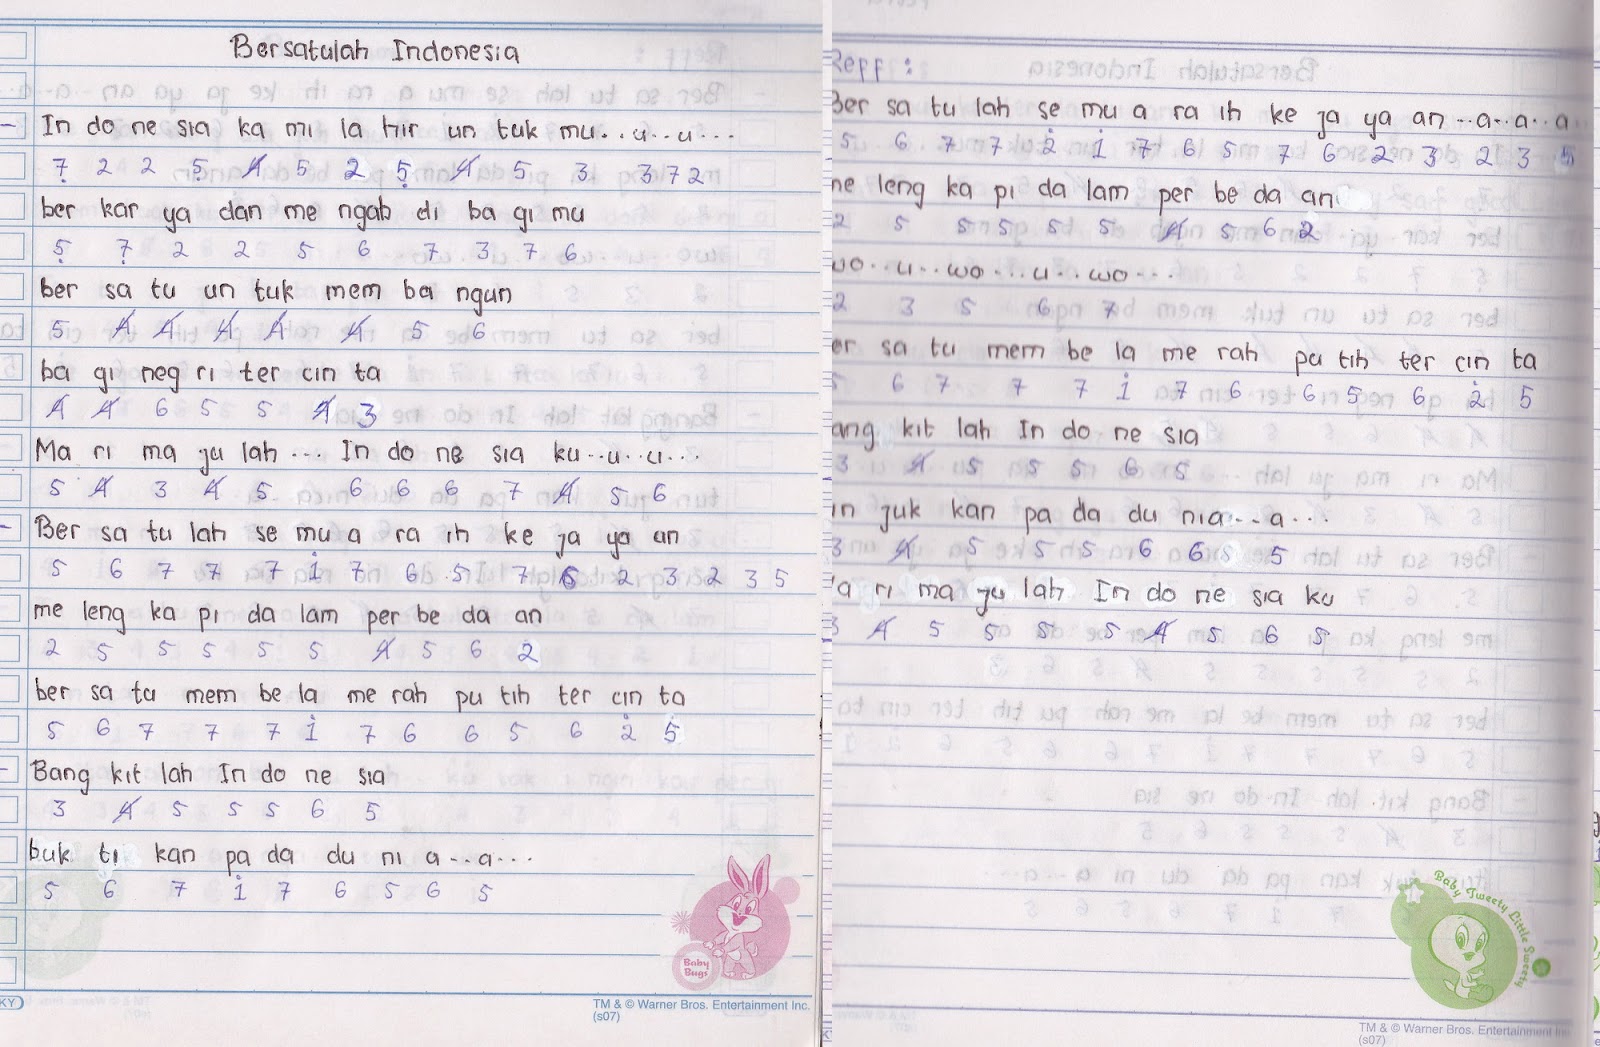 Bersatulah Indonesia
In do ne sia ka mi la hir un tuk mu..u..u...
7̣ 2 2 5̣ 4̸ 5 2 5̣ 4̸ 5 3 3 7 2
ber kar ya dan me ngab di ba gi mu
5̣ 7̣ 2 2 5 6 7 3 7 6
ber sa tu un tuk mem ba ngun
5 4̸ 4̸ 4̸ 4̸ 4̸ 5 6
ba gi neg ri ter cin ta
4̸ 4̸ 6 5 5 4̸ 3
Ma ri ma ju lah ... In do ne sia ku..u..u...
5 4̸ 3 4̸ 5 6 6 6 7 4̸ 5 6
Ber sa tu lah se mu a ra ih ke ja ya an
5 6 7 7 7 1̇ 7 6 5 7 6 2 3 2 3 5
me leng ka pi da lam per be da an
2 5 5 5 5 5 4̸ 5 6 2
ber sa tu mem be la me rah pu tih ter cin ta
5 6 7 7 7 1̇ 7 6 6 5 6 2̇ 5̇
Bang kit lah In do ne sia
3 4̸ 5 5 5 6 5
buk ti kan pa da du ni a..a...
5 6 7 1̇ 7 6 5 6 5
Baby Bugs
TM & © Warner Bros. Entertainment Inc.
(s07)
KY
Reff :
Ber sa tu lah se mu a ra ih ke ja ya an..a..a..a
5 6 7 7 2̇ 1̇ 7 6 5 7 6 2 3 2 3 5
me leng ka pi da lam per be da an
2 5 5 5 5 5 4̸ 5 6 2
wo..u..wo...u..wo...
2 3 5 6 7
er sa tu mem be la me rah pu tih ter cin ta
5 6 7 7 7 1̇ 7 6 6 5 6 2̇ 5
ang kit lah In do ne sia
3 4̸ 5 5 5 6 5
n juk kan pa da du nia..a...
3 4̸ 5 5 5 6 6 5
a ri ma ju lah In do ne sia ku
3 4̸ 5 5 5 5 4̸ 5 6 5
Baby Tweety Little Sweety
TM & © Warner Bros. Entertainment Inc
(s07)